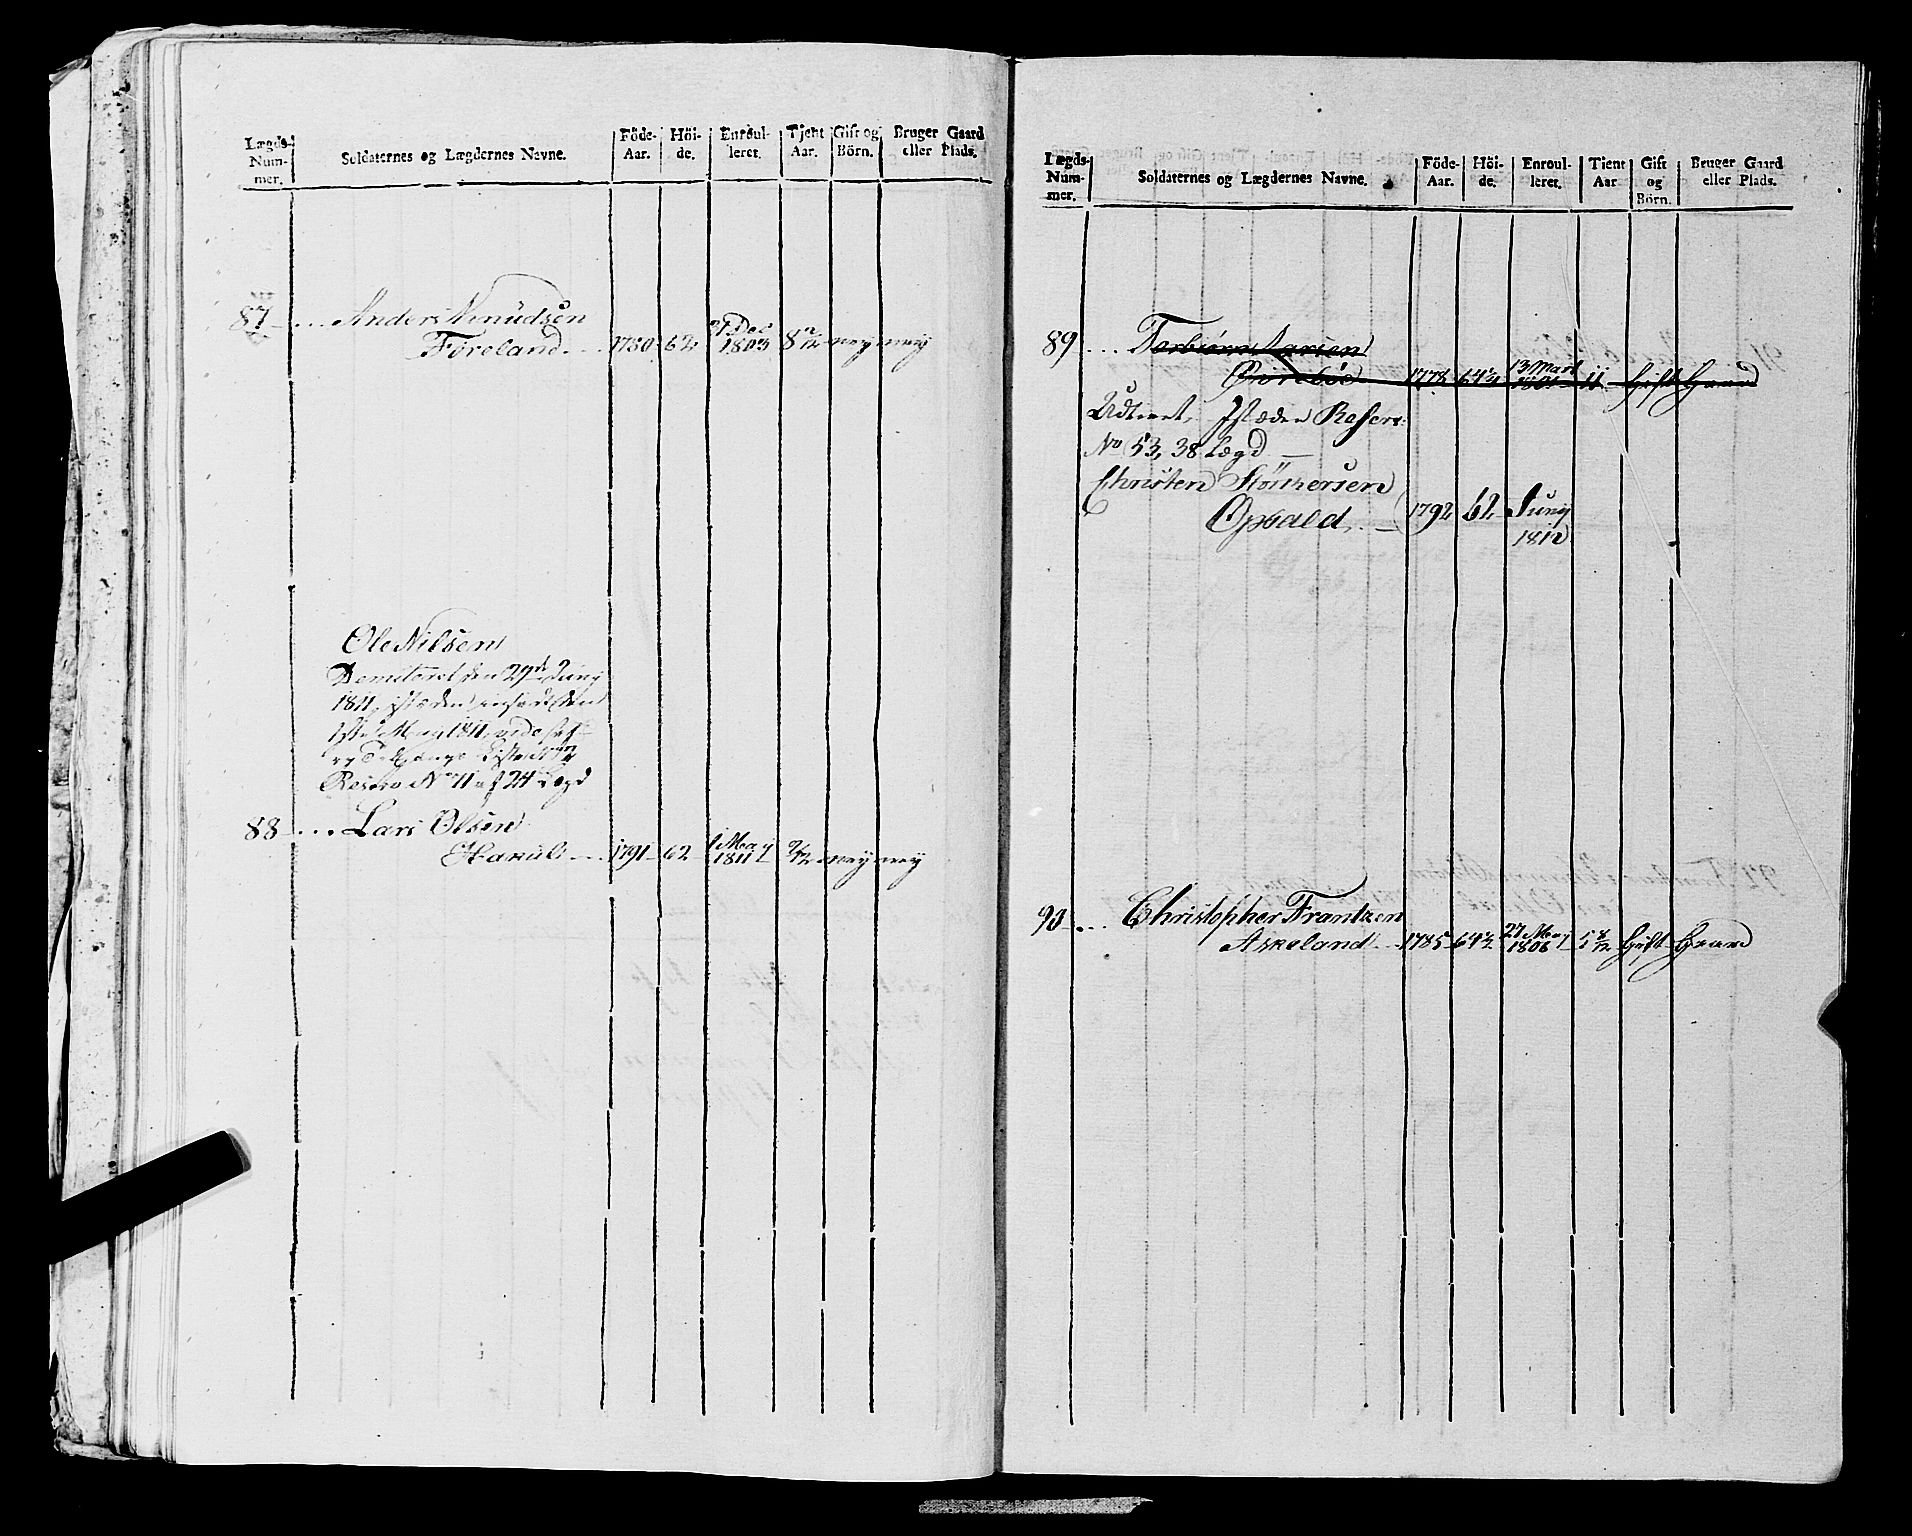 Lægds- Num- mer.
Soldaternes og Lægdernes Navne.
Föde- Aar.
Höi- de.
Enroul- leret.
Tjent Aar.
Gift og Börn.
Bruger Gaard eller Plads.
87 Anders Knudsen
Föreland 1780 62 Dec 1803 ney ney
Ole Nilsen
den 29d Juny
1811, istæden
May 1811, vide
Reserv No 71 af 24 Lægd
88 Lars Olsen
1791 62 1 May 1811 ney ney
Lægds- Num- mer.
Soldaternes og Lægdernes Navne.
Föde- Aar.
Höi- de.
Enroul- leret.
Tient Aar
Gift og Börn.
Bruger Gaard eller Plads.
89 Torbiörn Aasen
1778 64½ 13 Mart 1801 11 Gift Gaard
Udtient, Istæden Reserv:
No 53, 38 Lægd
Christen
Opsald 1792 62 Juny 1812
90 Christopher Frantzen
Askeland 1785 64½ 27 May 1806 5 8/12 Gift Gaard